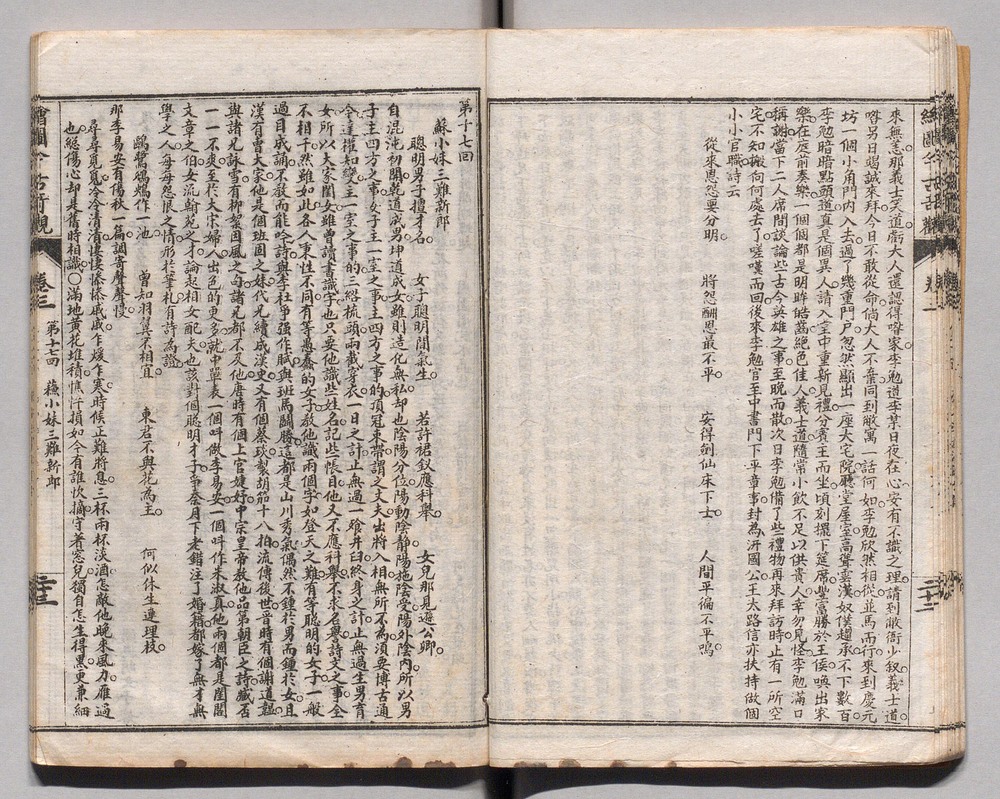 來無恙那義士笑道虧大人還認得喒家李勉道李某日夜在心安有不識之理請到敝衙少叙義士道
喒另日竭誠來拜今日不敢從命倘大人不棄同到敝寓一話何如李勉欣然相從並馬而行來到慶元
坊一個小角門內入去過了幾重門戶忽然顯出一座大宅院廳堂屋室高聳雲漢奴僕趨承不下數百
李勉暗暗點頭道真是個異人請入堂中重新見禮分賓主而坐頃刻擺下筵席豐富勝於王侯喚出家
樂在庭前奏樂一個個都是明眸皓齒絕色佳人義士道隨常小飲不足以供貴人幸勿見怪李勉滿口
稱謝當下二人席間談論些古今英雄之事至晚而散次日李勉備了些禮物再來拜訪時止有一所空
宅不知搬向何處去了嗟嘆而回後來李勉官至中書門下平章事封為汧國公王太路信亦扶持做個
小小官職詩云
從來恩怨要分明 將怨酬恩最不平 安得劍仙床下士 人間平徧不平鳴
繪圖今古奇觀 卷三 第十七回 蘇小妹三難新郎
第十七回
蘇小妹三難新郎
聰明男子擅才名 女子聰明間氣生 若許裙釵應科舉 女兒那見遜公卿
自混沌初闢乾道成男坤道成女雖則造化無私却也陰陽分位陽動陰静陽施陰受陽外陰內所以男
子主四方之事女子主一室之事主四方之事的頂冠束帶謂之丈夫出將入相無所不為須要博古通
今達權知變主一室之事的三綹梳頭兩截穿衣一日之計止無過饔飧井臼終身之計止無過生男育
女所以大家閨女雖曾讀書識字也只要他識些姓名記些帳目他又不應科舉不求名譽詩文之事全
不相干然雖如此各人東性不同有等愚蠢的女子教他識兩個字如登天之難有等聰明的女子一般
過目成誦不教而能吟詩與李杜爭强作賦與班馬鬬勝這都是山川秀氣偶然不鍾於男而鍾於女且
漢有曹大家他是個班固之妹代兄續成漢史又有個蔡琰製胡笳十八拍流傳後世晉時有個謝道韞
與諸兄詠雪有柳絮因風之句諸兄都不及他唐時有個上官婕妤中宗皇帝教他品第朝臣之詩臧否
一一不爽至於大宋婦人出色的更多就中單表一個叫做李易安一個叫作朱淑真他兩個都是閨閣
文章之伯女流翰苑之才論起相女配夫也該對個聰明才子爭奈月下老錯注了婚籍都嫁了無才無
學之人每每怨恨之情形於筆札有詩為證
鷗鷺鴛鴦作一池 曾知羽翼不相宜 東君不與花為主 何似休生連理枝
那李易安有傷秋一篇調寄聲聲慢
尋尋覓覓冷冷清清悽悽慘慘戚戚乍煖乍寒時候止難將息三杯兩杯淡酒怎敵他晚來風力雁過
也總傷心却是舊時相識〇滿地黃花堆積憔忤損如今有誰忺摘守著窓兒獨自怎生得黑更兼細